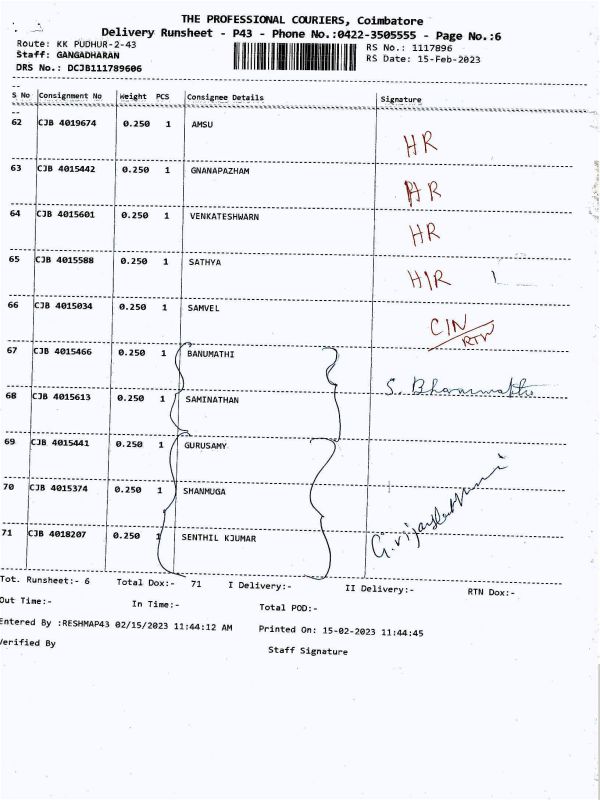 THE PROFESSIONAL COURIERS, Coimbatore
Delivery Runsheet - P43 - Phone No.:0422-3505555 - Page No.:6
Route: KK PUDHUR-2-43 RS No.: 1117896
Staff: GANGADHARAN RS Date: 15-Feb-2023
DRS No.: DCJB111789606
S No Consignment No Weight PCS Consignee Details Signature
62 CJB 4019674 0.250 1 AMSU HR
63 CJB 4015442 0.250 1 GNANAPAZHAM HR
64 CJB 4015601 0.250 1 VENKATESHWARN HR
65 CJB 4015588 0.250 1 SATHYA HIR
66 CJB 4015034 0.250 1 SAMVEL CIN/RTN
67 CJB 4015466 0.250 1 BANUMATHI
68 CJB 4015613 0.250 1 SAMINATHAN S.
69 CJB 4015441 0.250 1 GURUSAMY
70 CJB 4015374 0.250 1 SHANMUGA
71 CJB 4018207 0.250 1 SENTHIL KJUMAR G.
Tot. Runsheet:- 6 Total Dox:- 71 I Delivery:- II Delivery:- RTN Dox:-
Out Time:- In Time:- Total POD:-
Entered By :RESHMAP43 02/15/2023 11:44:12 AM Printed On: 15-02-2023 11:44:45
Verified By Staff Signature